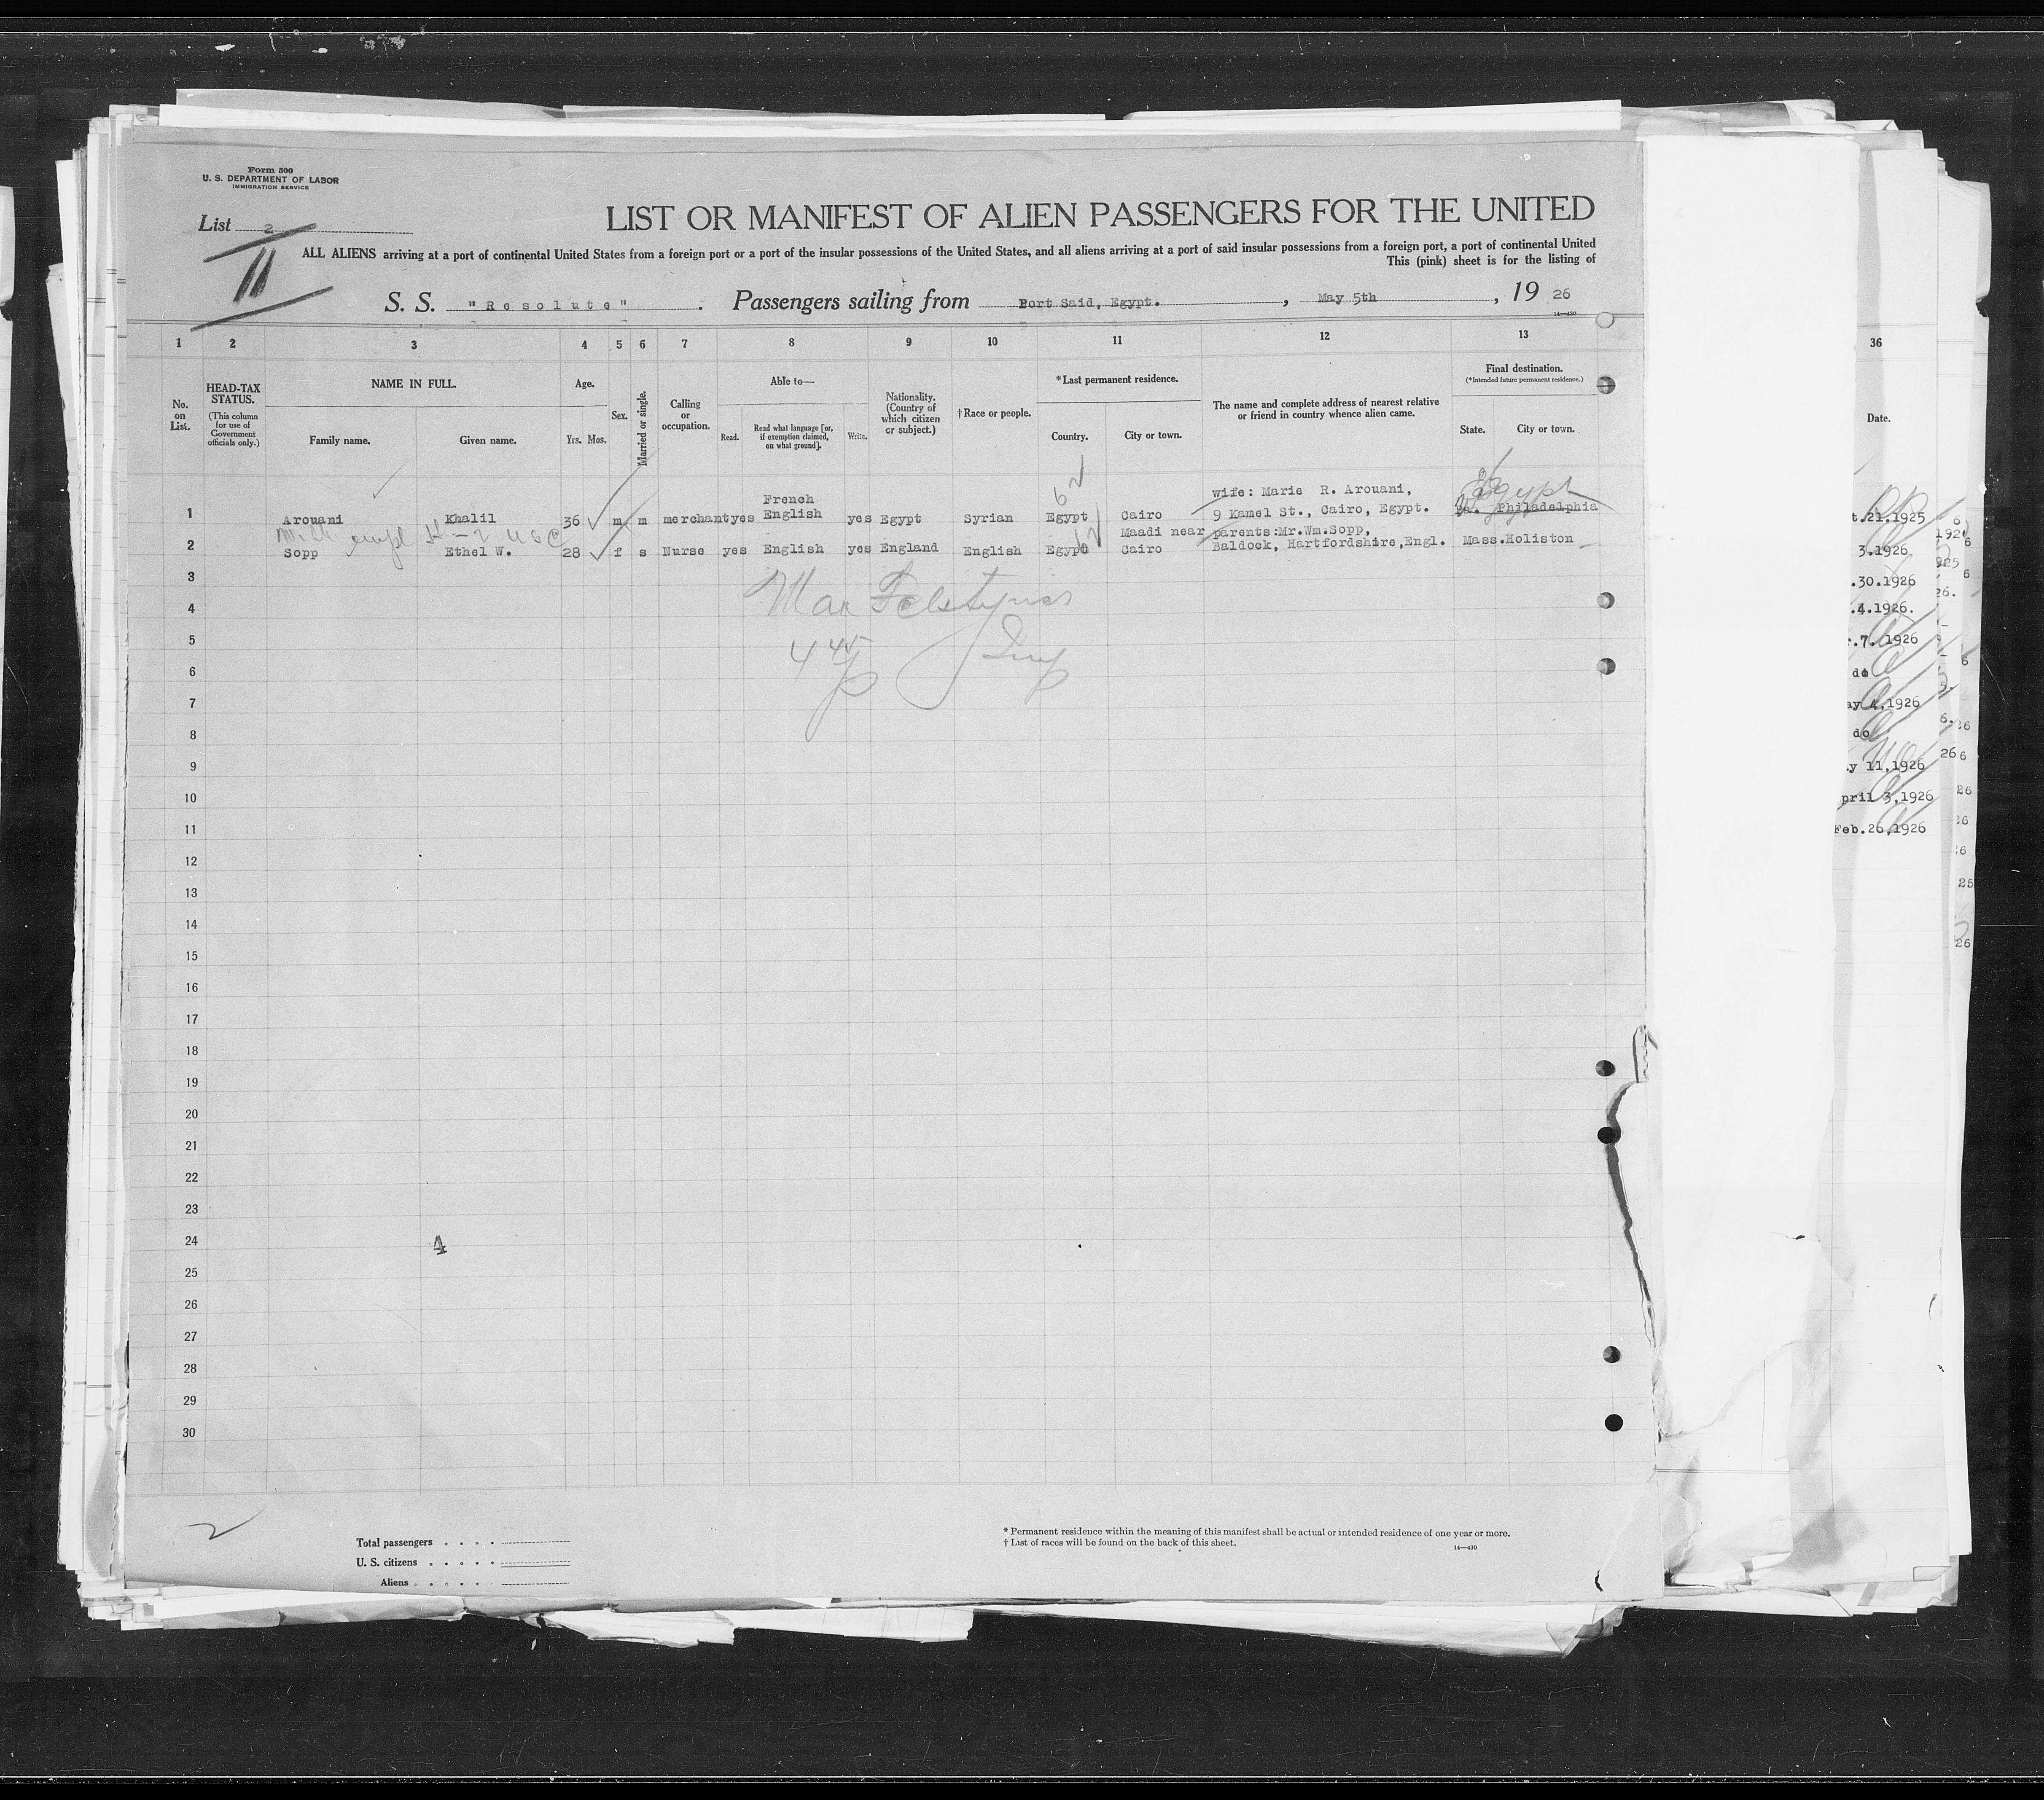 Form 500
U. S. DEPARTMENT OF LABOR
IMMIGRATION SERVICE
List 2
II
LIST OR MANIFEST OF ALIEN PASSENGERS FOR THE UNITED
ALL ALIENS arriving at a port of continental United States from a foreign port or a port of the insular possessions of the United States, and all aliens arriving at a port of said insular possessions from a foreign port, a port of continental United
This (pink) sheet is for the listing of
S. S. "Resolute". Passengers sailing from Port Said, Egypt., May 5th, 1926
14—430
1 2 3 4 5 6 7 8 9 10 11 12 13
No. on List.
HEAD-TAX STATUS.
(This column for use of Government officials only.)
NAME IN FULL.
Family name. Given name.
Age.
Yrs. Mos.
Sex.
Married or single.
Calling or occupation.
Able to—
Read. Read what language [or, if exemption claimed, on what ground]. Write.
Nationality. (Country of which citizen or subject.)
†Race or people.
*Last permanent residence.
Country. City or town.
The name and complete address of nearest relative or friend in country whence alien came.
Final destination.
(*Intended future permanent residence.)
State. City or town.
1 Arouani Khalil 36 m m merchant yes French English yes Egypt Syrian Egypt Cairo wife: Marie R. Arouani, 9 Kamel St., Cairo, Egypt. Pa. Philadelphia
Egypt
2 Sopp Ethel W. 28 f s Nurse yes English yes England English Egypt Maadi near Cairo parents:Mr.Wm.Sopp, Baldock, Hartfordshire,Engl. Mass.Holiston
3
4
5
6
7
8
9
10
11
12
13
14
15
16
17
18
19
20
21
22
23
24
4
25
26
27
28
29
30
2
Total passengers
U. S. citizens
Aliens
* Permanent residence within the meaning of this manifest shall be actual or intended residence of one year or more.
† List of races will be found on the back of this sheet.
14—430
36
Date.
t.21.1925
3.1926
.30.1926
.4.1926.
.7. 1926
do
ay 4,1926
do
y 11,1926
pril 3,1926
Feb.26,1926